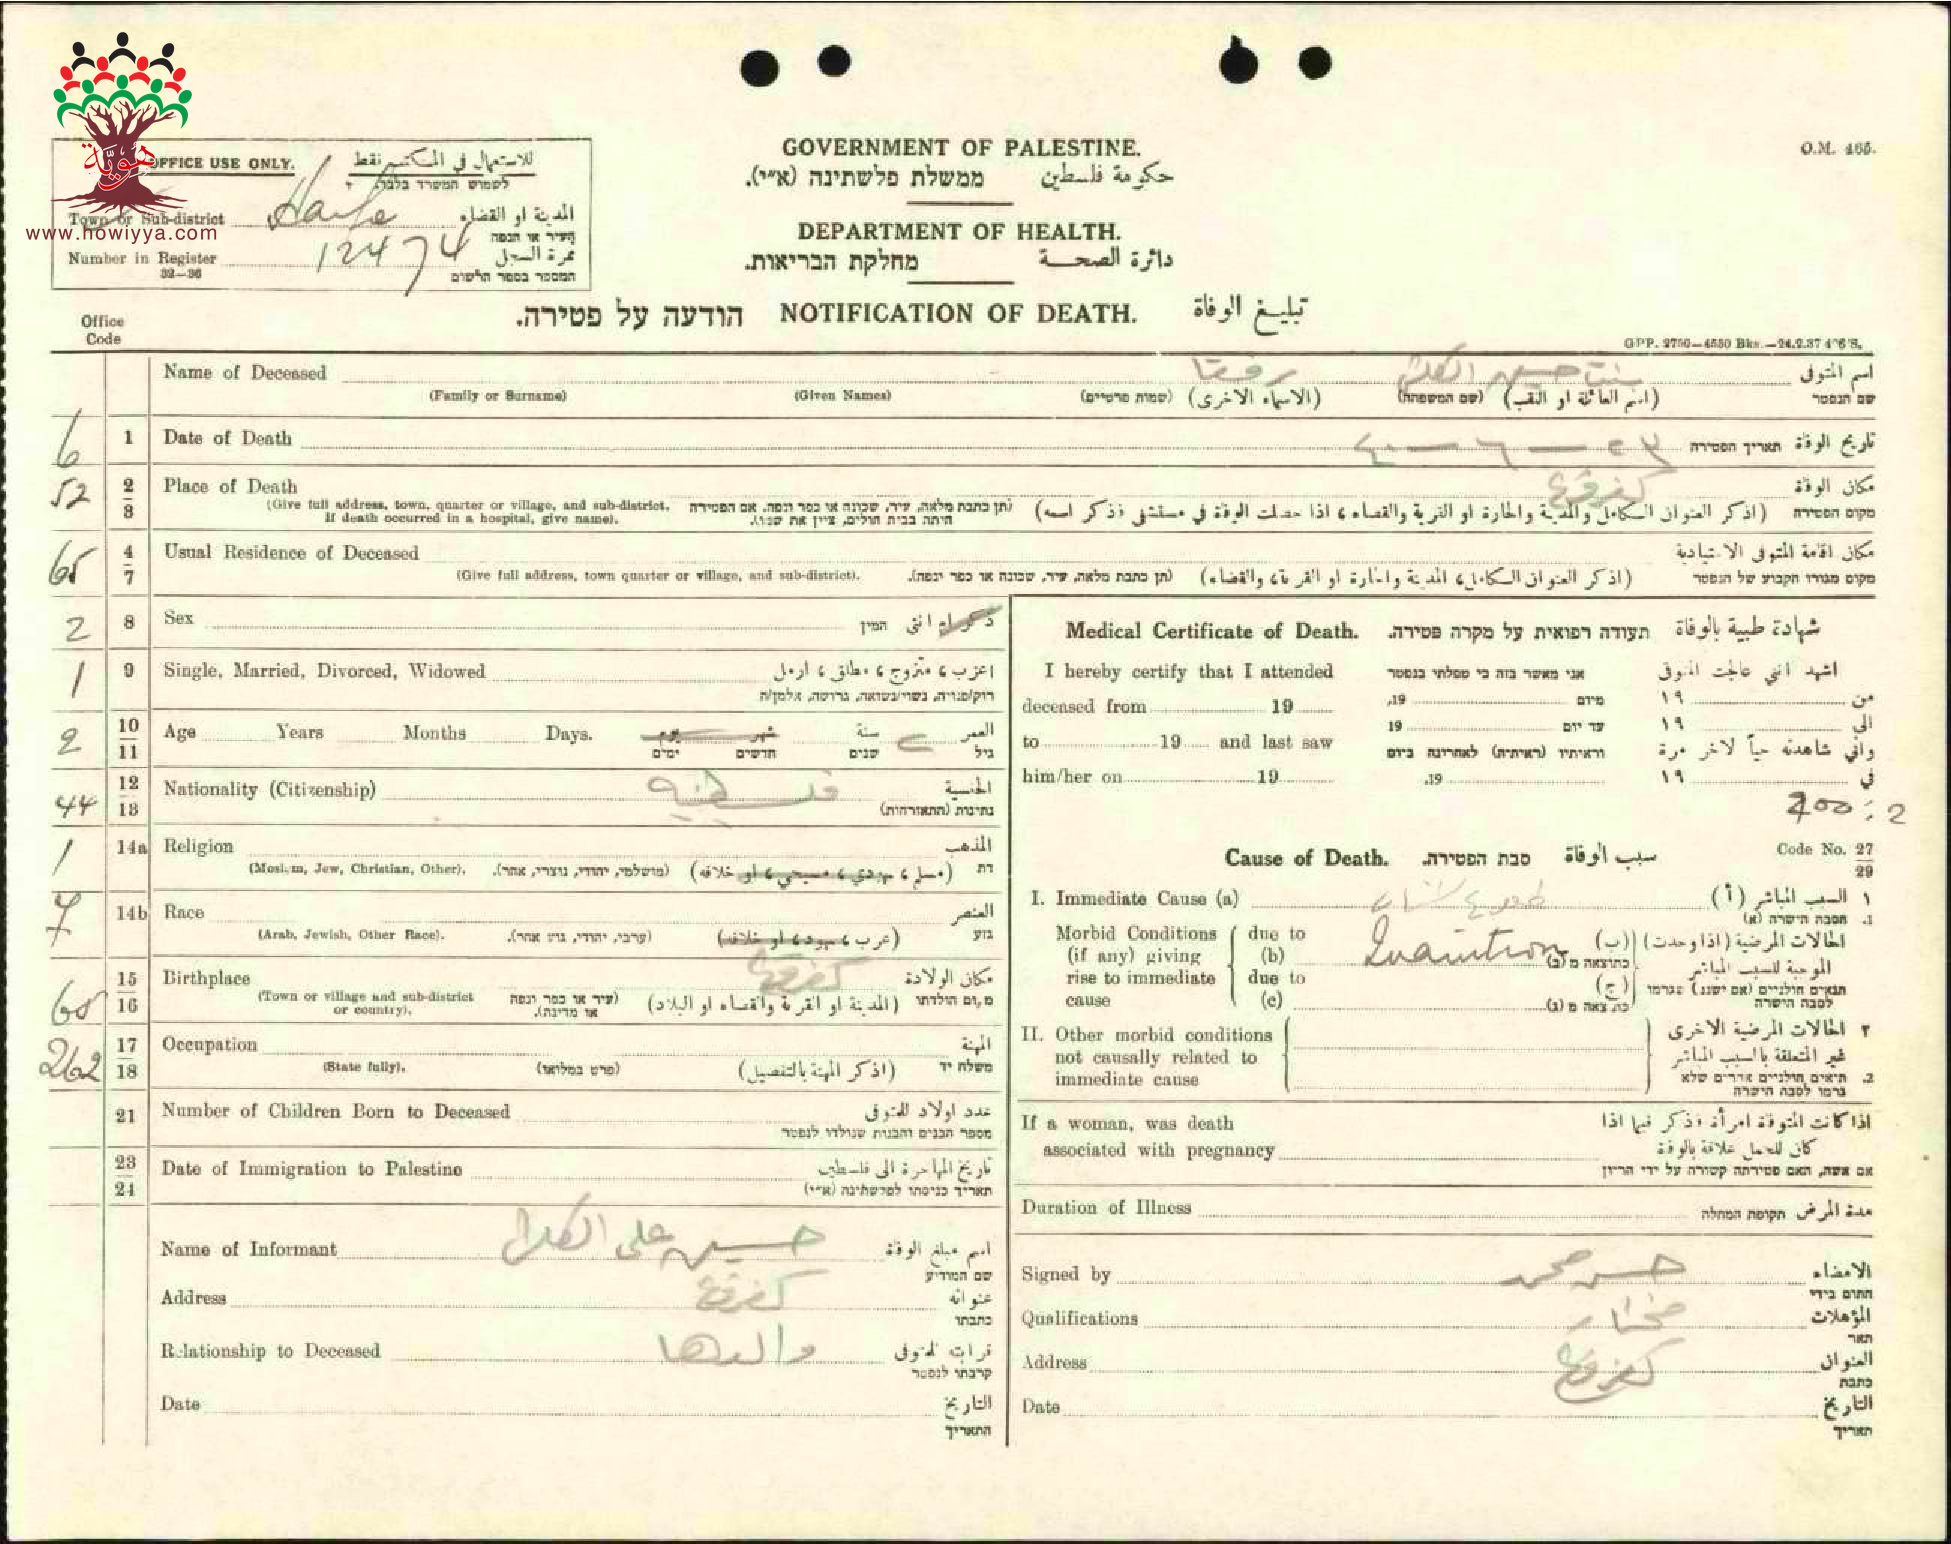 هويّة
www.howiyya.com
OFFICE USE ONLY. للاستعمال في المكتب فقط
לשמוש המשרד בלבד.
Town or Sub-district Haifa المدينة او القضاء
העיר או הנפה
Number in Register 12474 نمرة السجل
32—36 המספר בספר הרשום
O.M. 465.
GOVERNMENT OF PALESTINE.
ממשלת פלשתינה (א״י). حكومة فلسطين
DEPARTMENT OF HEALTH.
מחלקת הבריאות. دائرة الصحة
הודעה על פטירה. NOTIFICATION OF DEATH. تبليغ الوفاة
Office
Code
GPP. 2750—4550 Bks.—24.2.37
Name of Deceased بنت حسين اسم المتوفى
(Family or Surname) (Given Names) (שמות פרטיים) (الاسماء الاخرى) (שם המשפחה) (اسم العائلة او اللقب) שם הנפטר
6 1 Date of Death ٢٣ — ٦ — ٤٠ תאריך הפטירה تاريخ الوفاة
52 2 3 Place of Death كفرقرع مكان الوفاة
(Give full address, town, quarter or village, and sub-district. (תן כתבת מלאה, עיר, שכונה או כפר ונפה. אם הפטירה (اذكر العنوان الكامل والمدينة والحارة او القرية والقضاء، اذا حصلت الوفاة في مستشفى فذكر اسمه) מקום הפטירה
If death occurred in a hospital, give name). היתה בבית חולים, ציין את שמו).
65 4 7 Usual Residence of Deceased مكان اقامة المتوفى الاعتيادية
(Give full address, town quarter or village, and sub-district). (תן כתבת מלאה, עיר, שכונה או כפר ונפה). (اذكر العنوان الكامل، المدينة والحارة او القرية والقضاء) מקום מגורו הקבוע של הנפטר
2 8 Sex המין ذكر او انثى
1 9 Single, Married, Divorced, Widowed اعزب، متزوج، مطلق، ارمل
רוק/פנויה, נשוי/נשואה, גרושה, אלמן/ה
2 10 11 Age Years Months Days. يوم شهر سنة ٢ العمر
ימים חדשים שנים גיל
44 12 13 Nationality (Citizenship) فلسطينيه الجنسية
נתינות (התאזרחות)
1 14a Religion المذهب
(Moslem, Jew, Christian, Other). (מושלמי, יהודי, נוצרי, אחר). (مسلم، يهودي، مسيحي، او خلافه) דת
7 14b Race العنصر
(Arab, Jewish, Other Race). (ערבי, יהודי, גזע אחר). (عرب، يهود، او خلافه) גזע
65 15 16 Birthplace كفرقرع مكان الولادة
(Town or village and sub-district or country). (עיר או כפר ונפה או מדינה). (المدينة او القرية والقضاء او البلاد) מקום הולדתו
262 17 18 Occupation المهنة
(State fully). (פרט במלואו) (اذكر المهنة بالتفصيل) משלח יד
21 Number of Children Born to Deceased عدد اولاد للمتوفى
מספר הבנים והבנות שנולדו לנפטר
23 24 Date of Immigration to Palestine تاريخ المهاجرة الى فلسطين
תאריך כניסתו לפלשתינה (א״י)
Name of Informant حسين علي اسم مبلغ الوفاة
שם המודיע
Address كفرقرع عنوانه
כתבתו
Relationship to Deceased والدها قرابته للمتوفى
קרבתו לנפטר
Date التاريخ
התאריך
Medical Certificate of Death. תעודה רפואית על מקרה פטירה. شهادة طبية بالوفاة
I hereby certify that I attended אני מאשר בזה כי טפלתי בנפטר اشهد انني عالجت المتوفى
deceased from 19 19, מיום ١٩ من
to 19 and last saw 19 עד יום ١٩ الى
וראיתיו (ראיתיה) לאחרונה ביום واني شاهدته حياً لاخر مرة
him/her on 19 19. ١٩ في
200 : 2
Cause of Death. סבת הפטירה. سبب الوفاة Code No. 27 29
I. Immediate Cause (a) السبب المباشر (أ) ١
הסבה הישרה (א) 1.
Morbid Conditions due to الحالات المرضية (اذا وجدت) (ب)
(if any) giving (b) Inanition כתוצאה מ (ב) الموجبة للسبب المباشر
rise to immediate due to (ج) תנאים חולניים (אם ישנם) שגרמו
cause (c) כתוצאה מ (ג) לסבה הישרה
II. Other morbid conditions الحالات المرضية الاخرى ٢
not causally related to غير المتعلقة بالسبب المباشر
immediate cause תנאים חולניים אחרים שלא 2.
גרמו לסבה הישרה
If a woman, was death اذا كانت المتوفاة امرأة فذكر فيما اذا
associated with pregnancy كان للحمل علاقة بالوفاة
אם אשה, האם פטירתה קשורה על ידי הריון
Duration of Illness תקופת המחלה مدة المرض
Signed by حسن محمد الامضاء
חתום בידי
Qualifications مختار المؤهلات
תאר
Address كفرقرع العنوان
כתבת
Date التاريخ
תאריך